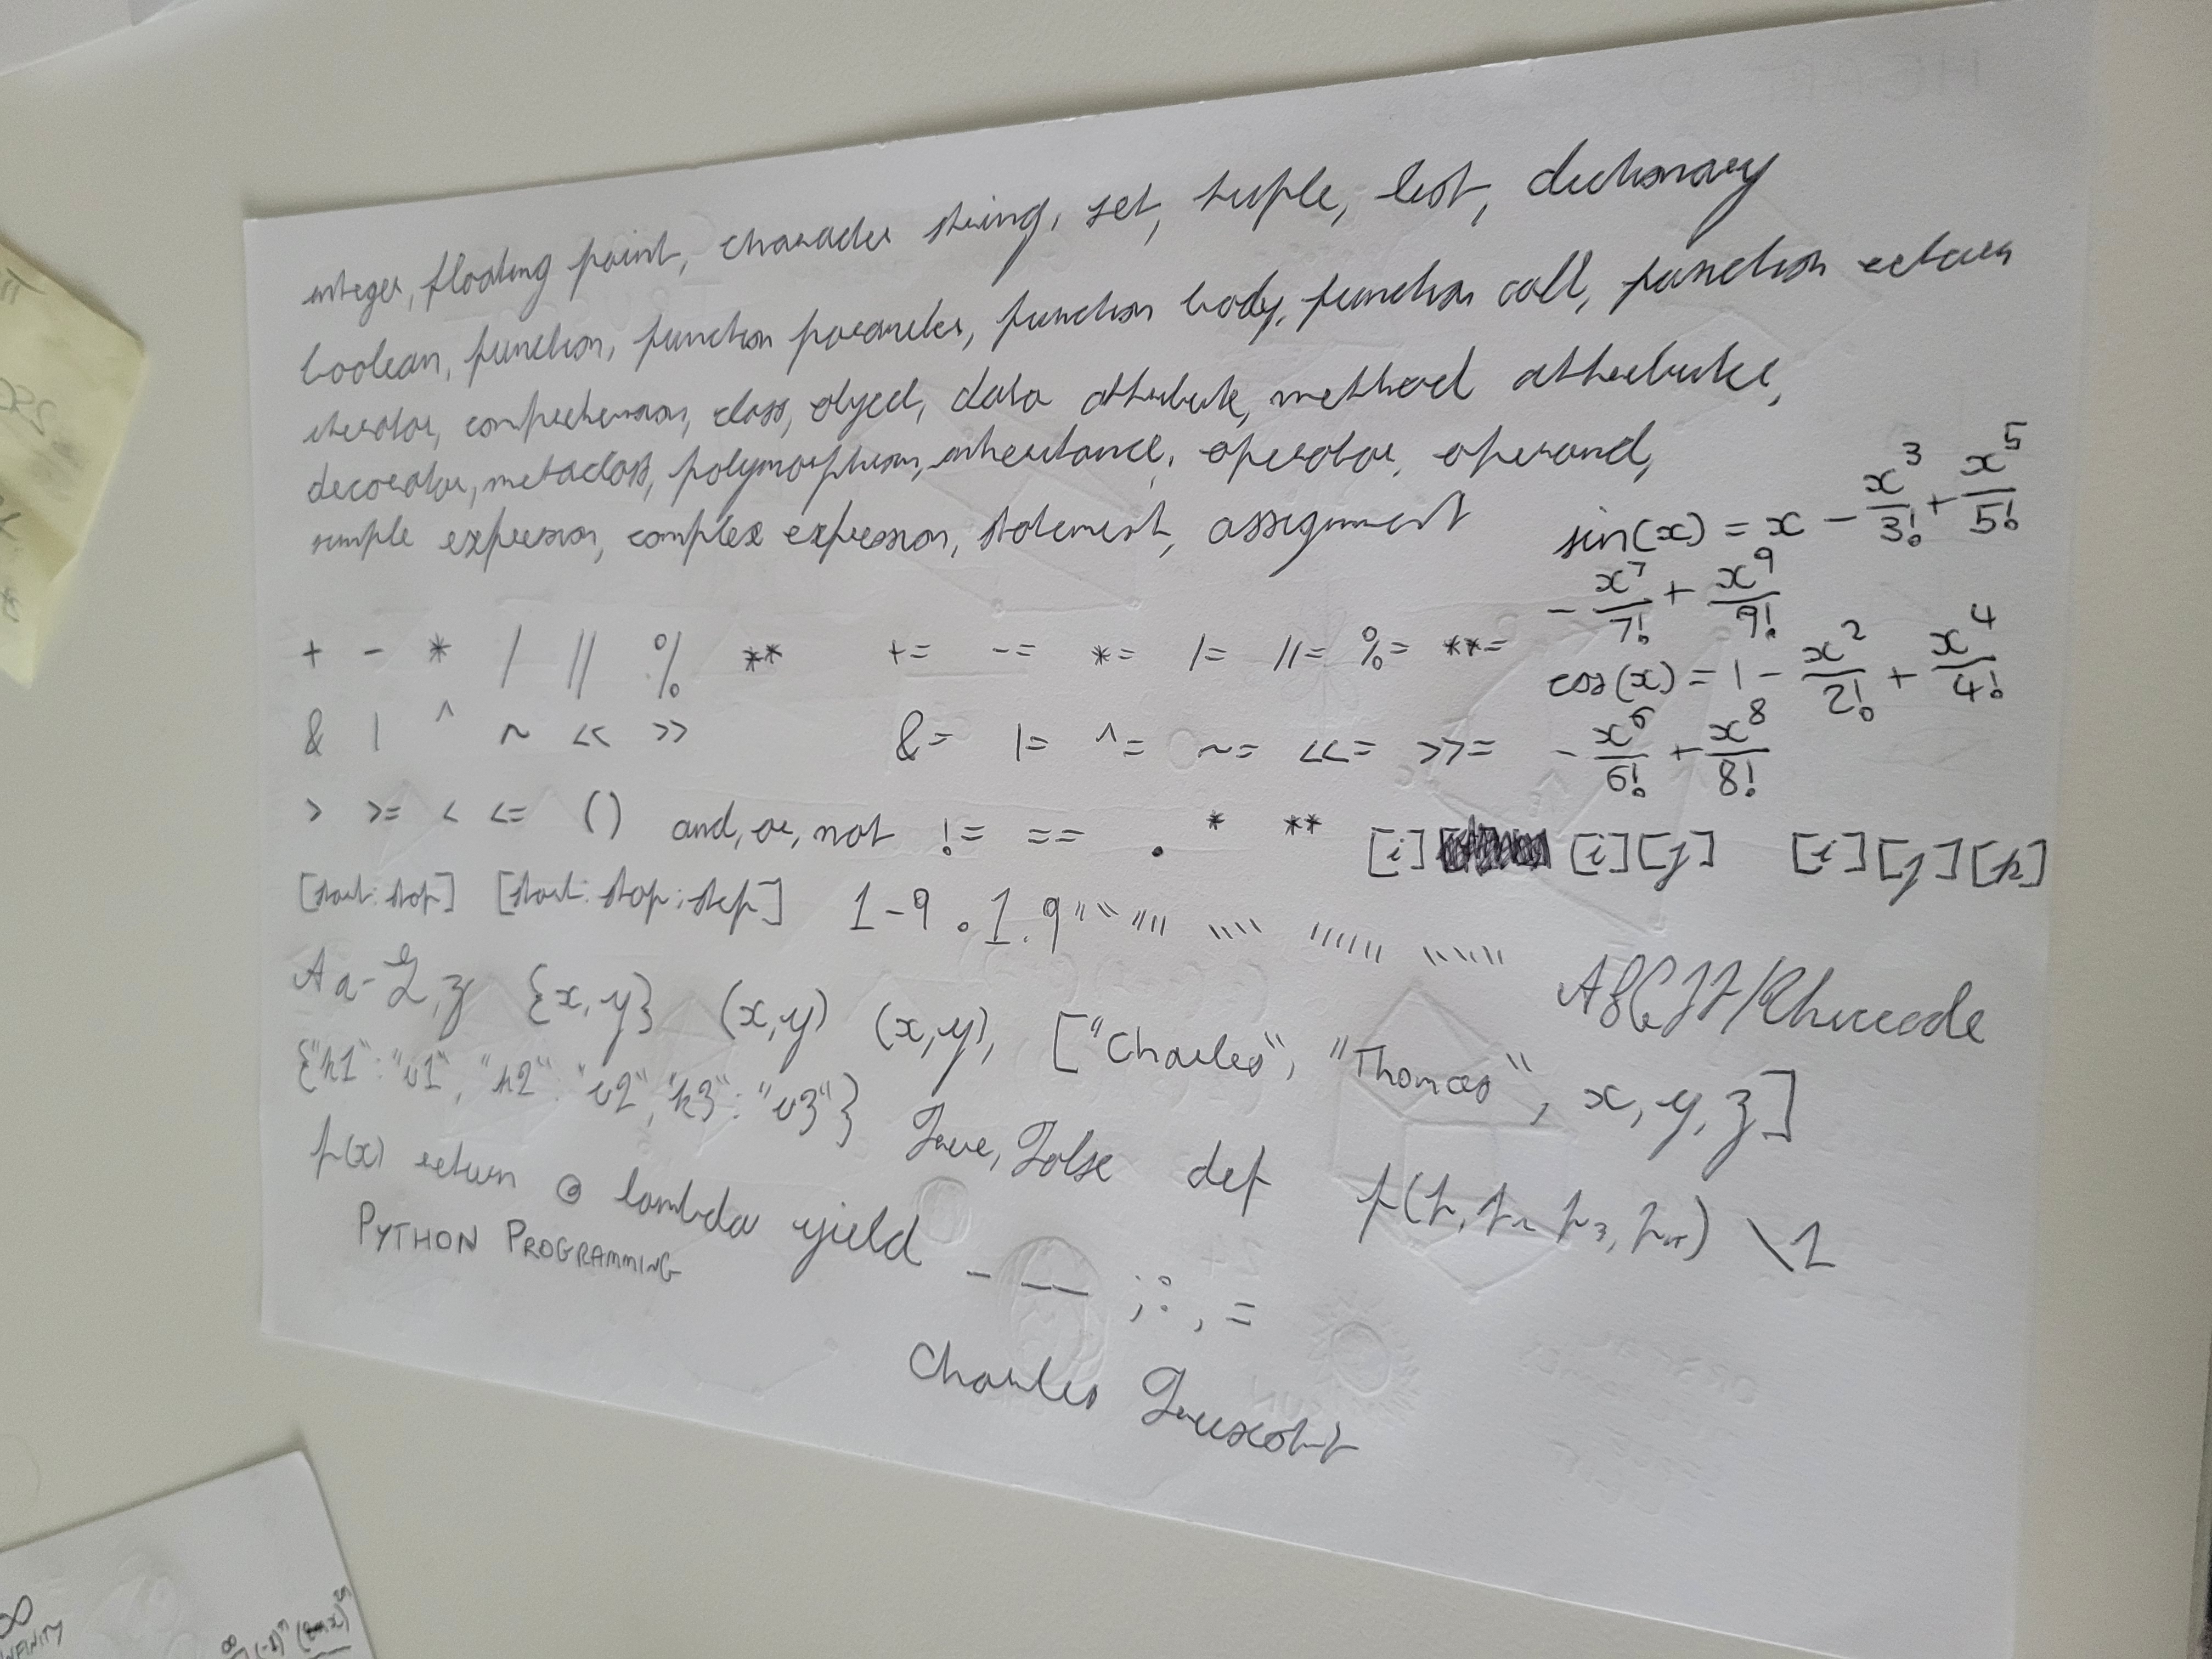 integer, floating point, character string, set, tuple, list, dictionary
boolean, function, function parameter, function body, function call, function return
iterator, comprehension, class, object, data attribute, method attribute,
decorator, metaclass, polymorphism, inheritance, operator, operand,
simple expression, complex expression, statement, assignment
sin(x) = x - x³/3! + x⁵/5!
- x⁷/7! + x⁹/9!
+ - * / // % ** += -= *= /= //= %= **=
cos(x) = 1 - x²/2! + x⁴/4!
- x⁶/6! + x⁸/8!
& | ^ ~ << >> &= |= ^= ~= <<= >>=
> >= < <= () and, or, not != == . * ** [i] [i][j] [i][j][k]
[start:stop] [start:stop:step] 1-9 . 1.9 "" """" '''' '''''' """""
A a-z, z {x, y} (x,y) (x,y), ["Charles", "Thomas", x, y, z]
{"k1": "v1", "k2": "v2", "k3": "v3"} True, False def f(p₁, p₂, p₃, pₙ) \1
f(x) return @ lambda yield _ __ ; : , =
PYTHON PROGRAMMING
Charles Truscott